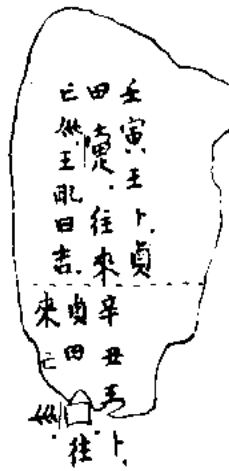 壬寅王卜貞
田往來
亡王曰吉
辛丑王卜
貞田往
來亡